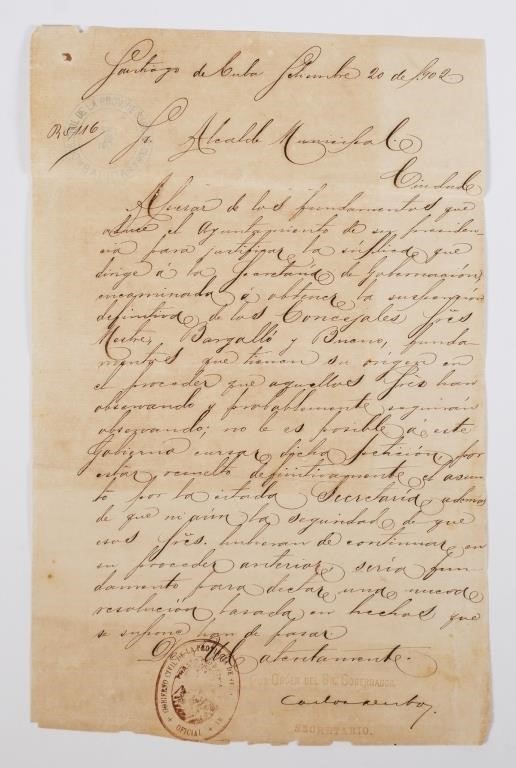 Santiago de Cuba Setiembre 20 de 1902
CIVIL DE LA PROV
R 5116
Sr. Alcalde Municipal
Ciudad
Apesar de los fundamentos que
aduce el Ayuntamiento de su presiden-
cia para justificar la súplica que
dirige á la Secretaría de Gobernación,
encaminada á obtener la suspensión
definitiva de los Concejales Sres
Mestre, Bargalló y Bueno, funda-
mentos que tienen su origen en
el proceder que aquellos Sres han
observando y probablemente seguirán
observando; no le es posible á este
Gobierno cursar dicha petición por
estar resuelto definitivamente el asun-
to por la citada Secretaría, ademas
de que ni aún la seguridad de que
esos Sres. hubieran de continuar en
su proceder anterior, sería fun-
damento para dictar una nueva
resolución basada en hechos que
se supone han de pasar.
De Ud atentamente.
POR ORDEN DEL SR. GOBERNADOR.
SECRETARIO.
GOBIERNO CIVIL DE LA PROV
OFICIAL